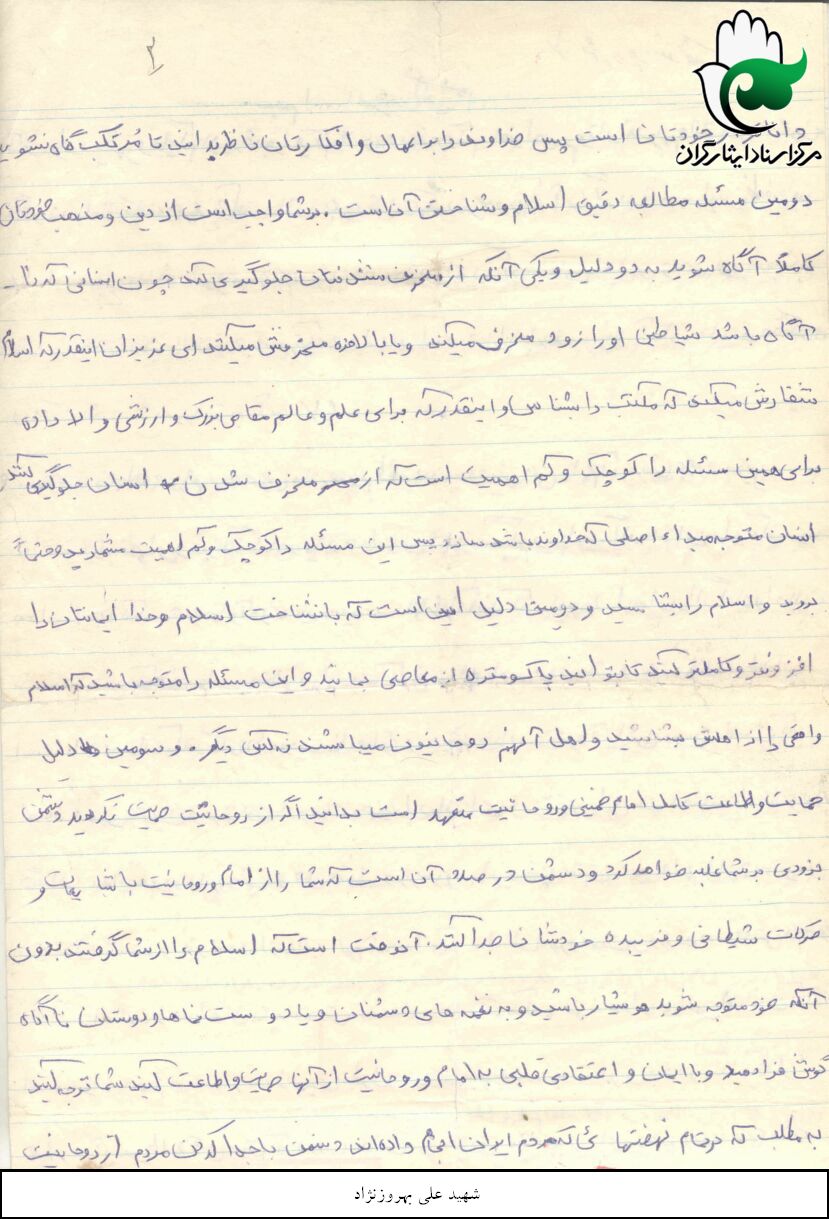 ۳
مرکز اسناد ایثارگران
خودتان است پس خداوند را بر اعمال و افکارتان ناظر بدانید تا مرتکب گناه نشوید
دومین مسئله مطالعه دقیق اسلام و شناختن آن است . برشما واجب است از دین و مذهب خودتان
کاملاً آگاه شوید به دو دلیل ویکی آنکه از منحرف شدنتان جلوگیری کند چون انسانی که نا
آگاه باشد شیاطین او را زود منحرف میکند و یا بالاخره منحرفش میکنند ای عزیزان اینقدر که اسلام
سفارش میکند که مکتب را بشناس و اینقدر که برای علم و عالم مقامی بزرگ و ارزشی والا داده
برای همین مسئله را کوچک و کم اهمیت است که از منحرف شدن انسان جلوگیری کند
انسان متوجه مبداء اصلی که خداوند باشد سازد پس این مسئله را کوچک و کم اهمیت مشمارید و حتماً
بروید و اسلام را بشناسید و دومین دلیل این است که باشناخت اسلام و خدا ایمانتان را
افزونتر و کاملتر کنید تا بتوانید پاک و منزه از معاصی بمانید و این مسئله را متوجه باشید که اسلام
واقعی را از اهلش بشناسید و اهل آنهم روحانیون میباشند نه کس دیگر . و سومین دلیل
حمایت و اطاعت کامل امام خمینی و روحانیت متعهد است بدانید اگر از روحانیت حمایت نکردید دشمن
بزودی بر شما غلبه خواهد کرد و دشمن در صدد آن است که شما را از امام و روحانیت با شایعات و
حرکات شیطانی و فریبنده خودشان جدا کند . آنوقت است که اسلام را از شما گرفتند بدون
آنکه خود متوجه شوید هوشیار باشید و به نغمه های دشمنان و یا دوست نماها و دوستان ناآگاه
گوش فرا ندهید و با ایمان و اعتقادی قلبی به امام و روحانیت از آنها حمایت و اطاعت کنید شما توجه کنید
به مطلب که در تمام نهضتها ئی که مردم ایران انجام داده اند دشمن با جدا کردن مردم از روحانیت
شهید علی بهروزنژاد